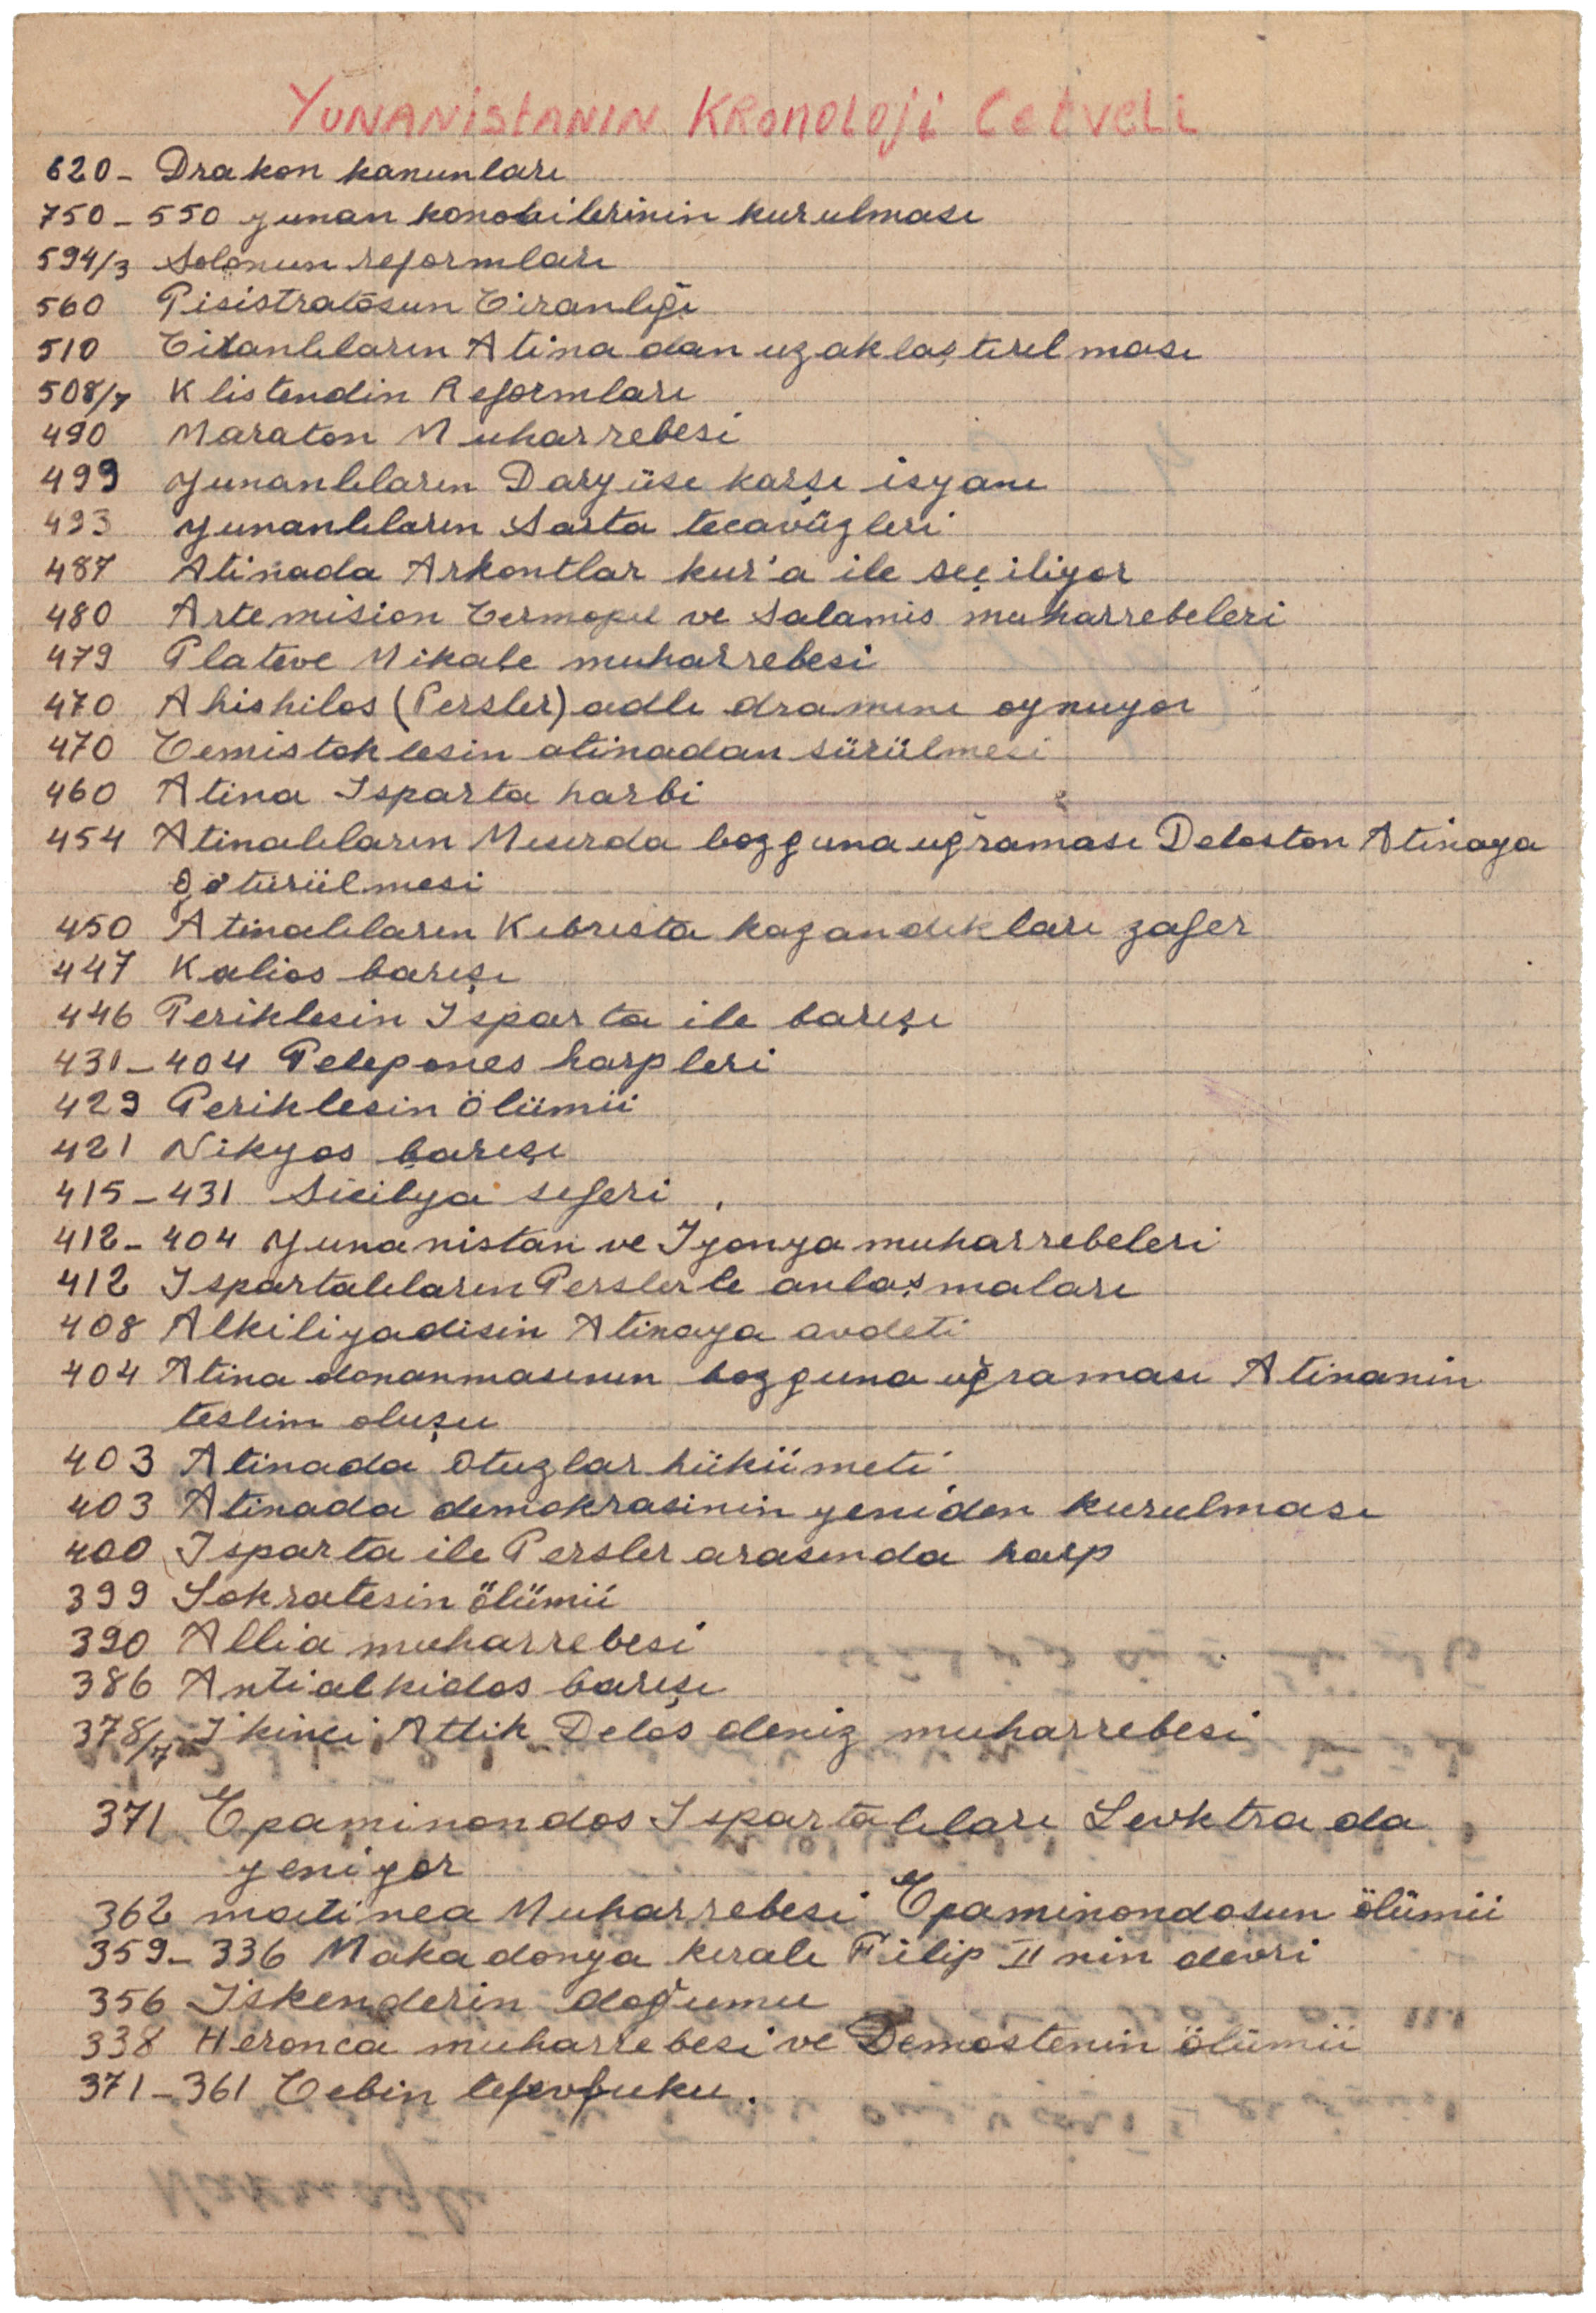 YUNANistANIN KRonoLoji Cetveli
620- Drakon kanunları
750-550 yunan konolilerinin kurulması
594/3 Solonun reformları
560 Pisistratosun Tiranlığı
510 Tiranlıların Atina dan uzaklaştırılması
508/7 Klistendin Reformları
490 Maraton Muharrebesi
499 yunanlıların Daryüse karşı isyanı
493 yunanlıların Sarta tecavüzleri
487 Atinada Arkontlar kur'a ile seçiliyor
480 Artemision Termopil ve Salamis muharrebeleri
479 Plateve Mikale muharrebesi
470 Ahishilos (Persler) adlı dramını oynuyor
470 Temistoklesin atinadan sürülmesi
460 Atina Isparta harbi
454 Atinalıların Mısırda bozguna uğraması Deloston Atinaya
götürülmesi
450 Atinalıların Kıbrısta kazandıkları zafer
447 Kalios barışı
446 Periklesin Isparta ile barışı
431-404 Pelepones harpleri
429 Periklesin ölümü
421 Nikyos barışı
415-431 Sicilya seferi
412-404 yunanistan ve Iyonya muharrebeleri
412 Ispartalıların Perslerle anlaşmaları
408 Alkiliyadisin Atinaya avdeti
404 Atina donanmasının bozguna uğraması Atinanin
teslim oluşu
403 Atinada Otuzlar hükümeti
403 Atinada demokrasinin yeniden kurulması
400 Isparta ile Persler arasında harp
399 Sokratesin ölümü
390 Allia muharrebesi
386 Antialkidos barışı
378/7 Ikinci Attik Delos deniz muharrebesi
371 Epaminondos Ispartalıları Levktra da
yeniyor
362 matinea Muharrebesi Epaminondosun ölümü
359-336 Makadonya kıralı Filip II nin devri
356 Iskenderin doğumu
338 Heronca muharrebesi ve Demostenin ölümü
371-361 Tebin tefevfuku.